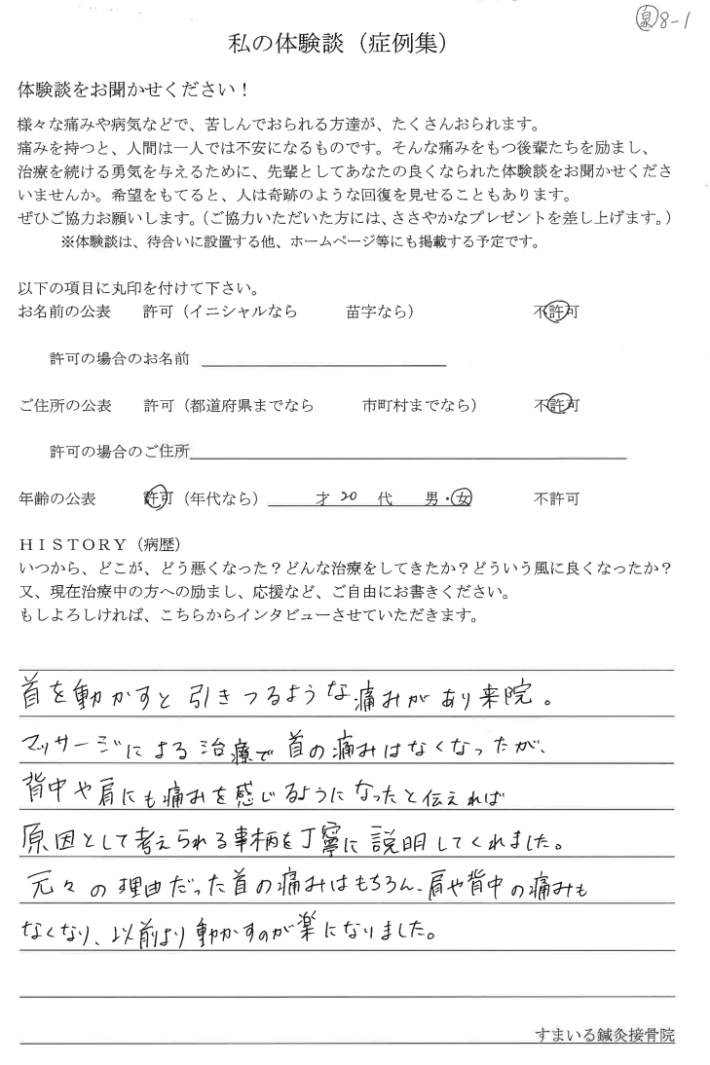 泉8-1
私の体験談（症例集）
体験談をお聞かせください！
様々な痛みや病気などで、苦しんでおられる方達が、たくさんおられます。
痛みを持つと、人間は一人では不安になるものです。そんな痛みをもつ後輩たちを励まし、
治療を続ける勇気を与えるために、先輩としてあなたの良くなられた体験談をお聞かせくださ
いませんか。希望をもてると、人は奇跡のような回復を見せることもあります。
ぜひご協力お願いします。（ご協力いただいた方には、ささやかなプレゼントを差し上げます。）
※体験談は、待合いに設置する他、ホームページ等にも掲載する予定です。
以下の項目に丸印を付けて下さい。
お名前の公表　許可（イニシャルなら　苗字なら）　不許可
許可の場合のお名前
ご住所の公表　許可（都道府県までなら　市町村までなら）　不許可
許可の場合のご住所
年齢の公表　許可（年代なら）　才 20 代　男・女　不許可
ＨＩＳＴＯＲＹ（病歴）
いつから、どこが、どう悪くなった？どんな治療をしてきたか？どういう風に良くなったか？
又、現在治療中の方への励まし、応援など、ご自由にお書きください。
もしよろしければ、こちらからインタビューさせていただきます。
首を動かすと引きつるような痛みがあり来院。
マッサージによる治療で首の痛みはなくなったが、
背中や肩にも痛みを感じるようになったと伝えれば
原因として考えられる事柄を丁寧に説明してくれました。
元々の理由だった首の痛みはもちろん、肩や背中の痛みも
なくなり、以前より動かすのが楽になりました。
すまいる鍼灸接骨院